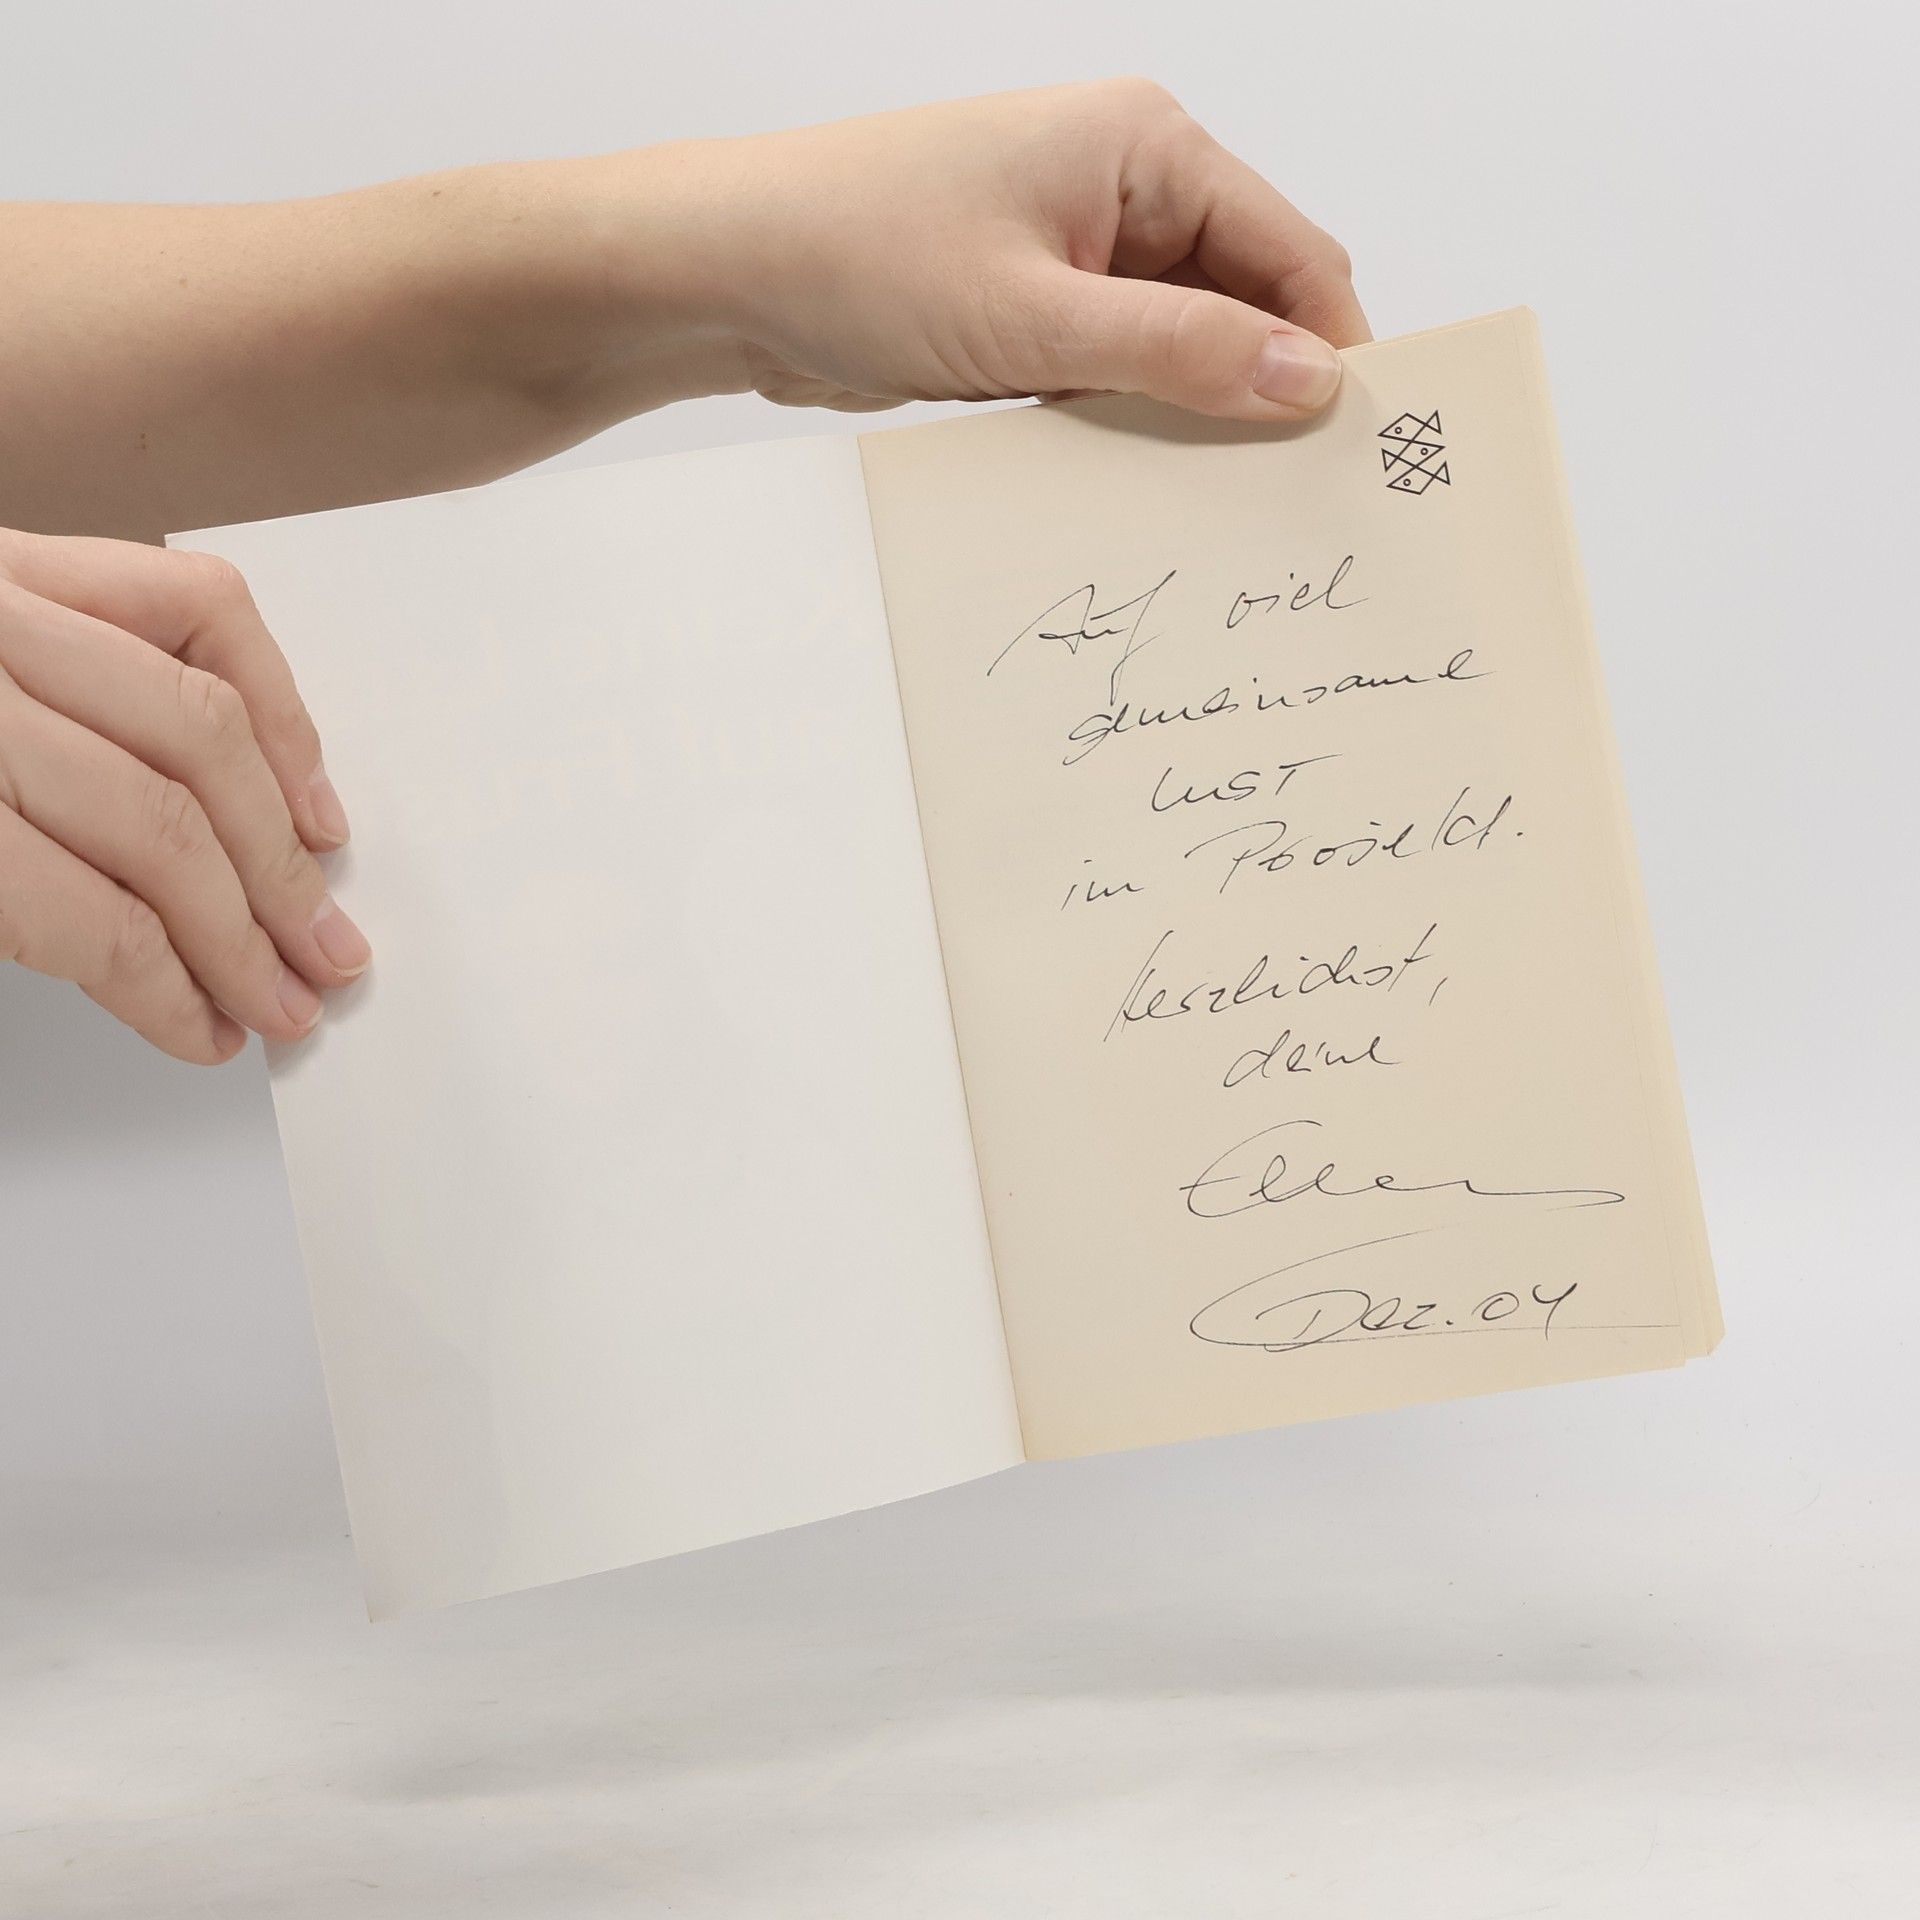 Auf viel
gemeinsame
Lust
im Projekt.
Herzlichst,
deine
Ellen
Dez. 04